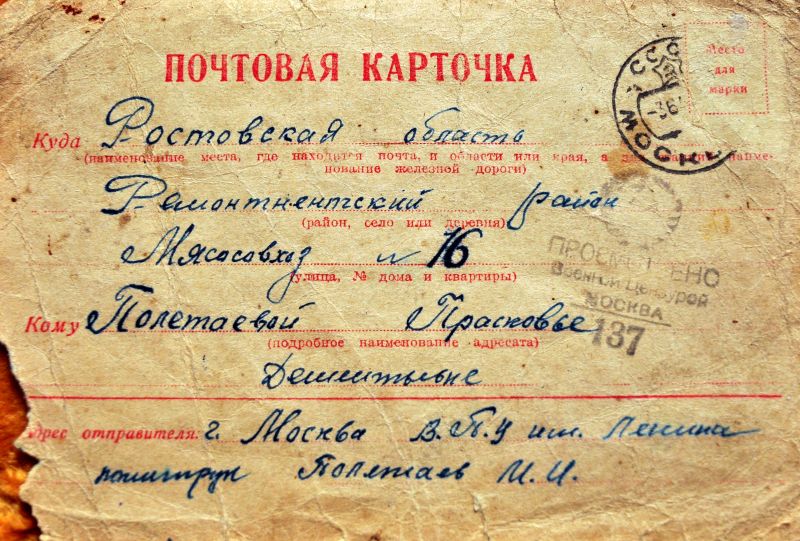 ПОЧТОВАЯ КАРТОЧКА
СССР
МОСКВА
Место
для
марки
Куда Ростовская область
(наименование места, где находится почта, и области или края, а для станций наиме-
нование железной дороги)
Ремонтнентский район
(район, село или деревня)
Мясосовхоз № 16
(улица, № дома и квартиры)
ПРОСМОТРЕНО
Военной Цензурой
МОСКВА
137
Кому Полетаевой Прасковье
(подробное наименование адресата)
Дементьевне
дрес отправителя: г. Москва В.П.У им. Ленина
политрук Полетаев И. И.